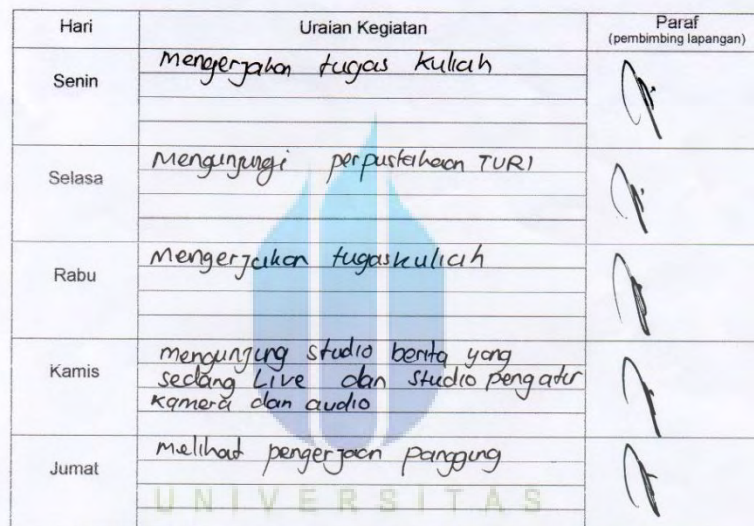 Hari Uraian Kegiatan Paraf
(pembimbing lapangan)
Senin mengerjakan tugas kuliah
Selasa mengunjungi perpustakaan TVRI
Rabu mengerjakan tugas kuliah
Kamis mengunjung studio berita yang
sedang Live dan studio pengatur
kamera dan audio
Jumat melihat pengerjaan panggung
UNIVERSITAS